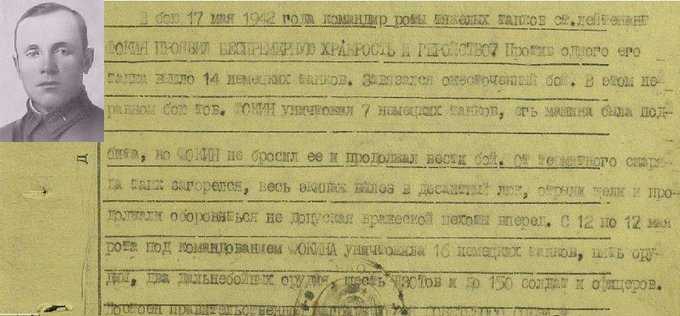 В бою 17 мая 1942 года командир роты тяжелых танков ст.лейтенант
ФОКИН ПРОЯВИЛ БЕСПРЕМЕРНУЮ ХРАБРОСТЬ И ГЕРОЙСТВО. Против одного его
танка вышло 14 немецких танков. Завязался ожесточенный бой. В этом не-
равном бою тов. ФОКИН уничтожил 7 немецких танков, его машина была под-
бита, но ФОКИН не бросил ее и продолжал вести бой. От термитного снаря-
да танк загорелся, весь экипаж вылез в десантный люк, отрыли щели и про-
должали обороняться не допуская вражеской пехоты вперед. С 12 по 17 мая
рота под командованием ФОКИНА уничтожила 16 немецких танков, пять ору-
дий, два дальнебойных орудия, шесть ДЗОТов и до 150 солдат и офицеров.
Достоен правительственной